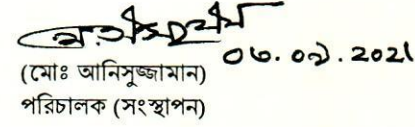 ০৬.০৯.2021
(মোঃ আনিসুজ্জামান)
পরিচালক (সংস্থাপন)